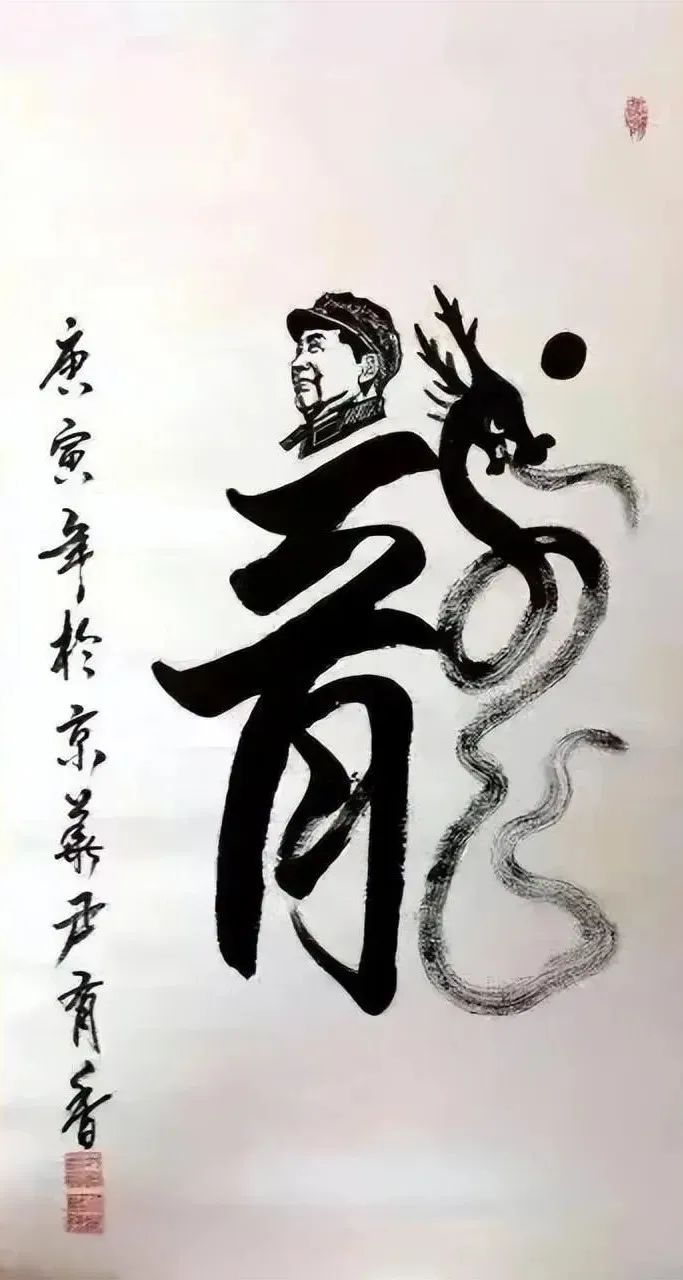 龍
庚寅年於京華尹有香